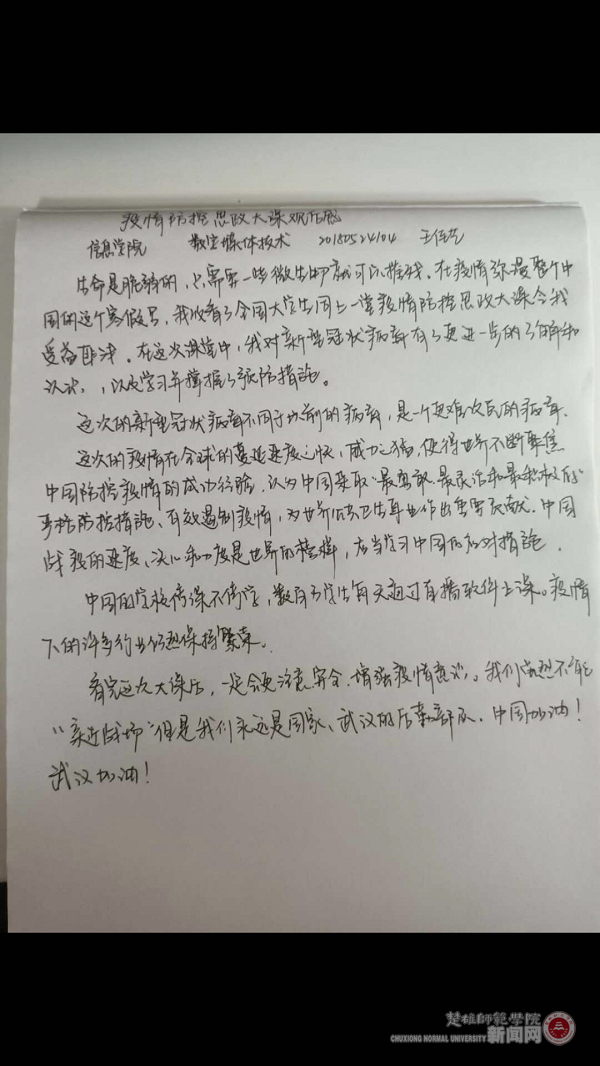 疫情防控思政大课观后感
信息学院 数字媒体技术 20180524104 王佳艺
生命是脆弱的,只需要一些微生物就可以摧残。在疫情弥漫整个中
国的这个寒假里,我收看了全国大学生同上一堂疫情防控思政大课令我
受益匪浅。在这次课堂中,我对新型冠状病毒有了更进一步的了解和
认识,以及学习并掌握了预防措施。
这次的新型冠状病毒不同于以前的病毒,是一个更难攻克的病毒。
这次的疫情在全球的蔓延速度之快,威力之猛,使得世界不断聚焦
中国防控疫情的成功经验,认为中国采取“最勇敢、最灵活和最积极的”
严格防控措施、有效遏制疫情,为世界公共卫生事业作出重要贡献。中国
战疫的速度、决心和力度是世界的榜样,应当学习中国的应对措施。
中国的学校停课不停学,数百万学生每天通过直播软件上课。疫情
下的许多行业仍然保持繁荣。
看完这次大课后,一定会更注意安全、增强疫情意识。我们虽然不能
“亲近战场”但是我们永远是国家、武汉的后勤部队。中国加油!
武汉加油!
楚雄師範學院
CHUXIONG NORMAL UNIVERSITY 新闻网